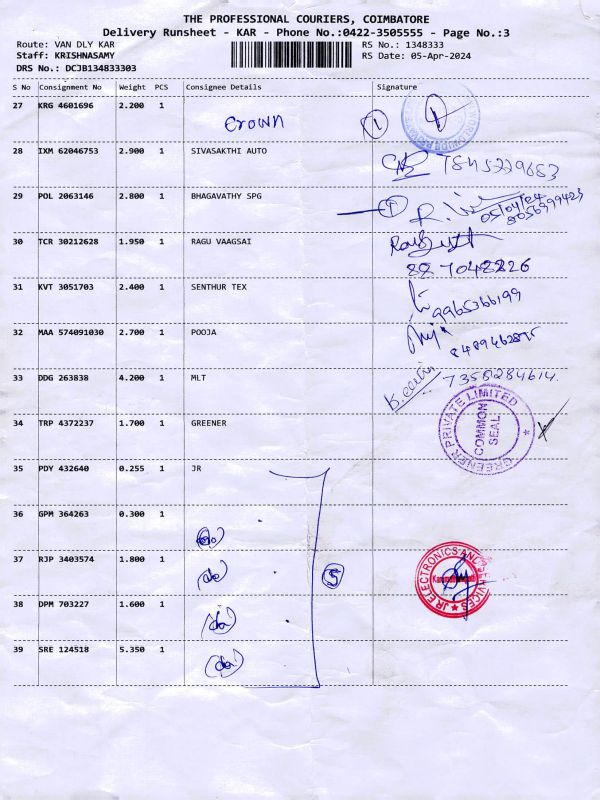 THE PROFESSIONAL COURIERS, COIMBATORE
Delivery Runsheet - KAR - Phone No.:0422-3505555 - Page No.:3
Route: VAN DLY KAR RS No.: 1348333
Staff: KRISHNASAMY RS Date: 05-Apr-2024
DRS No.: DCJB134833303
S No Consignment No Weight PCS Consignee Details Signature
27 KRG 4601696 2.200 1
Crown 1
28 IXM 62046753 2.900 1 SIVASAKTHI AUTO
7845729653
29 POL 2063146 2.800 1 BHAGAVATHY SPG
05/04/24
8056999423
30 TCR 30212628 1.950 1 RAGU VAAGSAI
31 KVT 3051703 2.400 1 SENTHUR TEX
9965366199
32 MAA 574091030 2.700 1 POOJA
33 DDG 263838 4.200 1 MLT
7358284614.
34 TRP 4372237 1.700 1 GREENER
GREENER PRIVATE LIMITED
COMMON
SEAL
35 PDY 432640 0.255 1 JR
36 GPM 364263 0.300 1
37 RJP 3403574 1.800 1
5
JR ELECTRONICS AND SERVICES
38 DPM 703227 1.600 1
39 SRE 124518 5.350 1